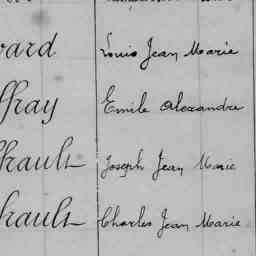 vard Louis Jean Marie
ffray Emile Alexandre
ffrault Joseph Jean Marie
hault Charles Jean Marie